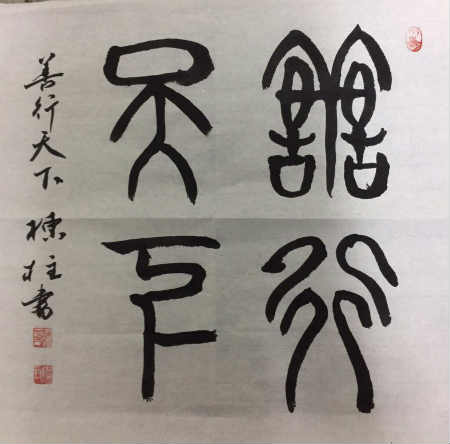 善行
天下
善行天下 棟柱書